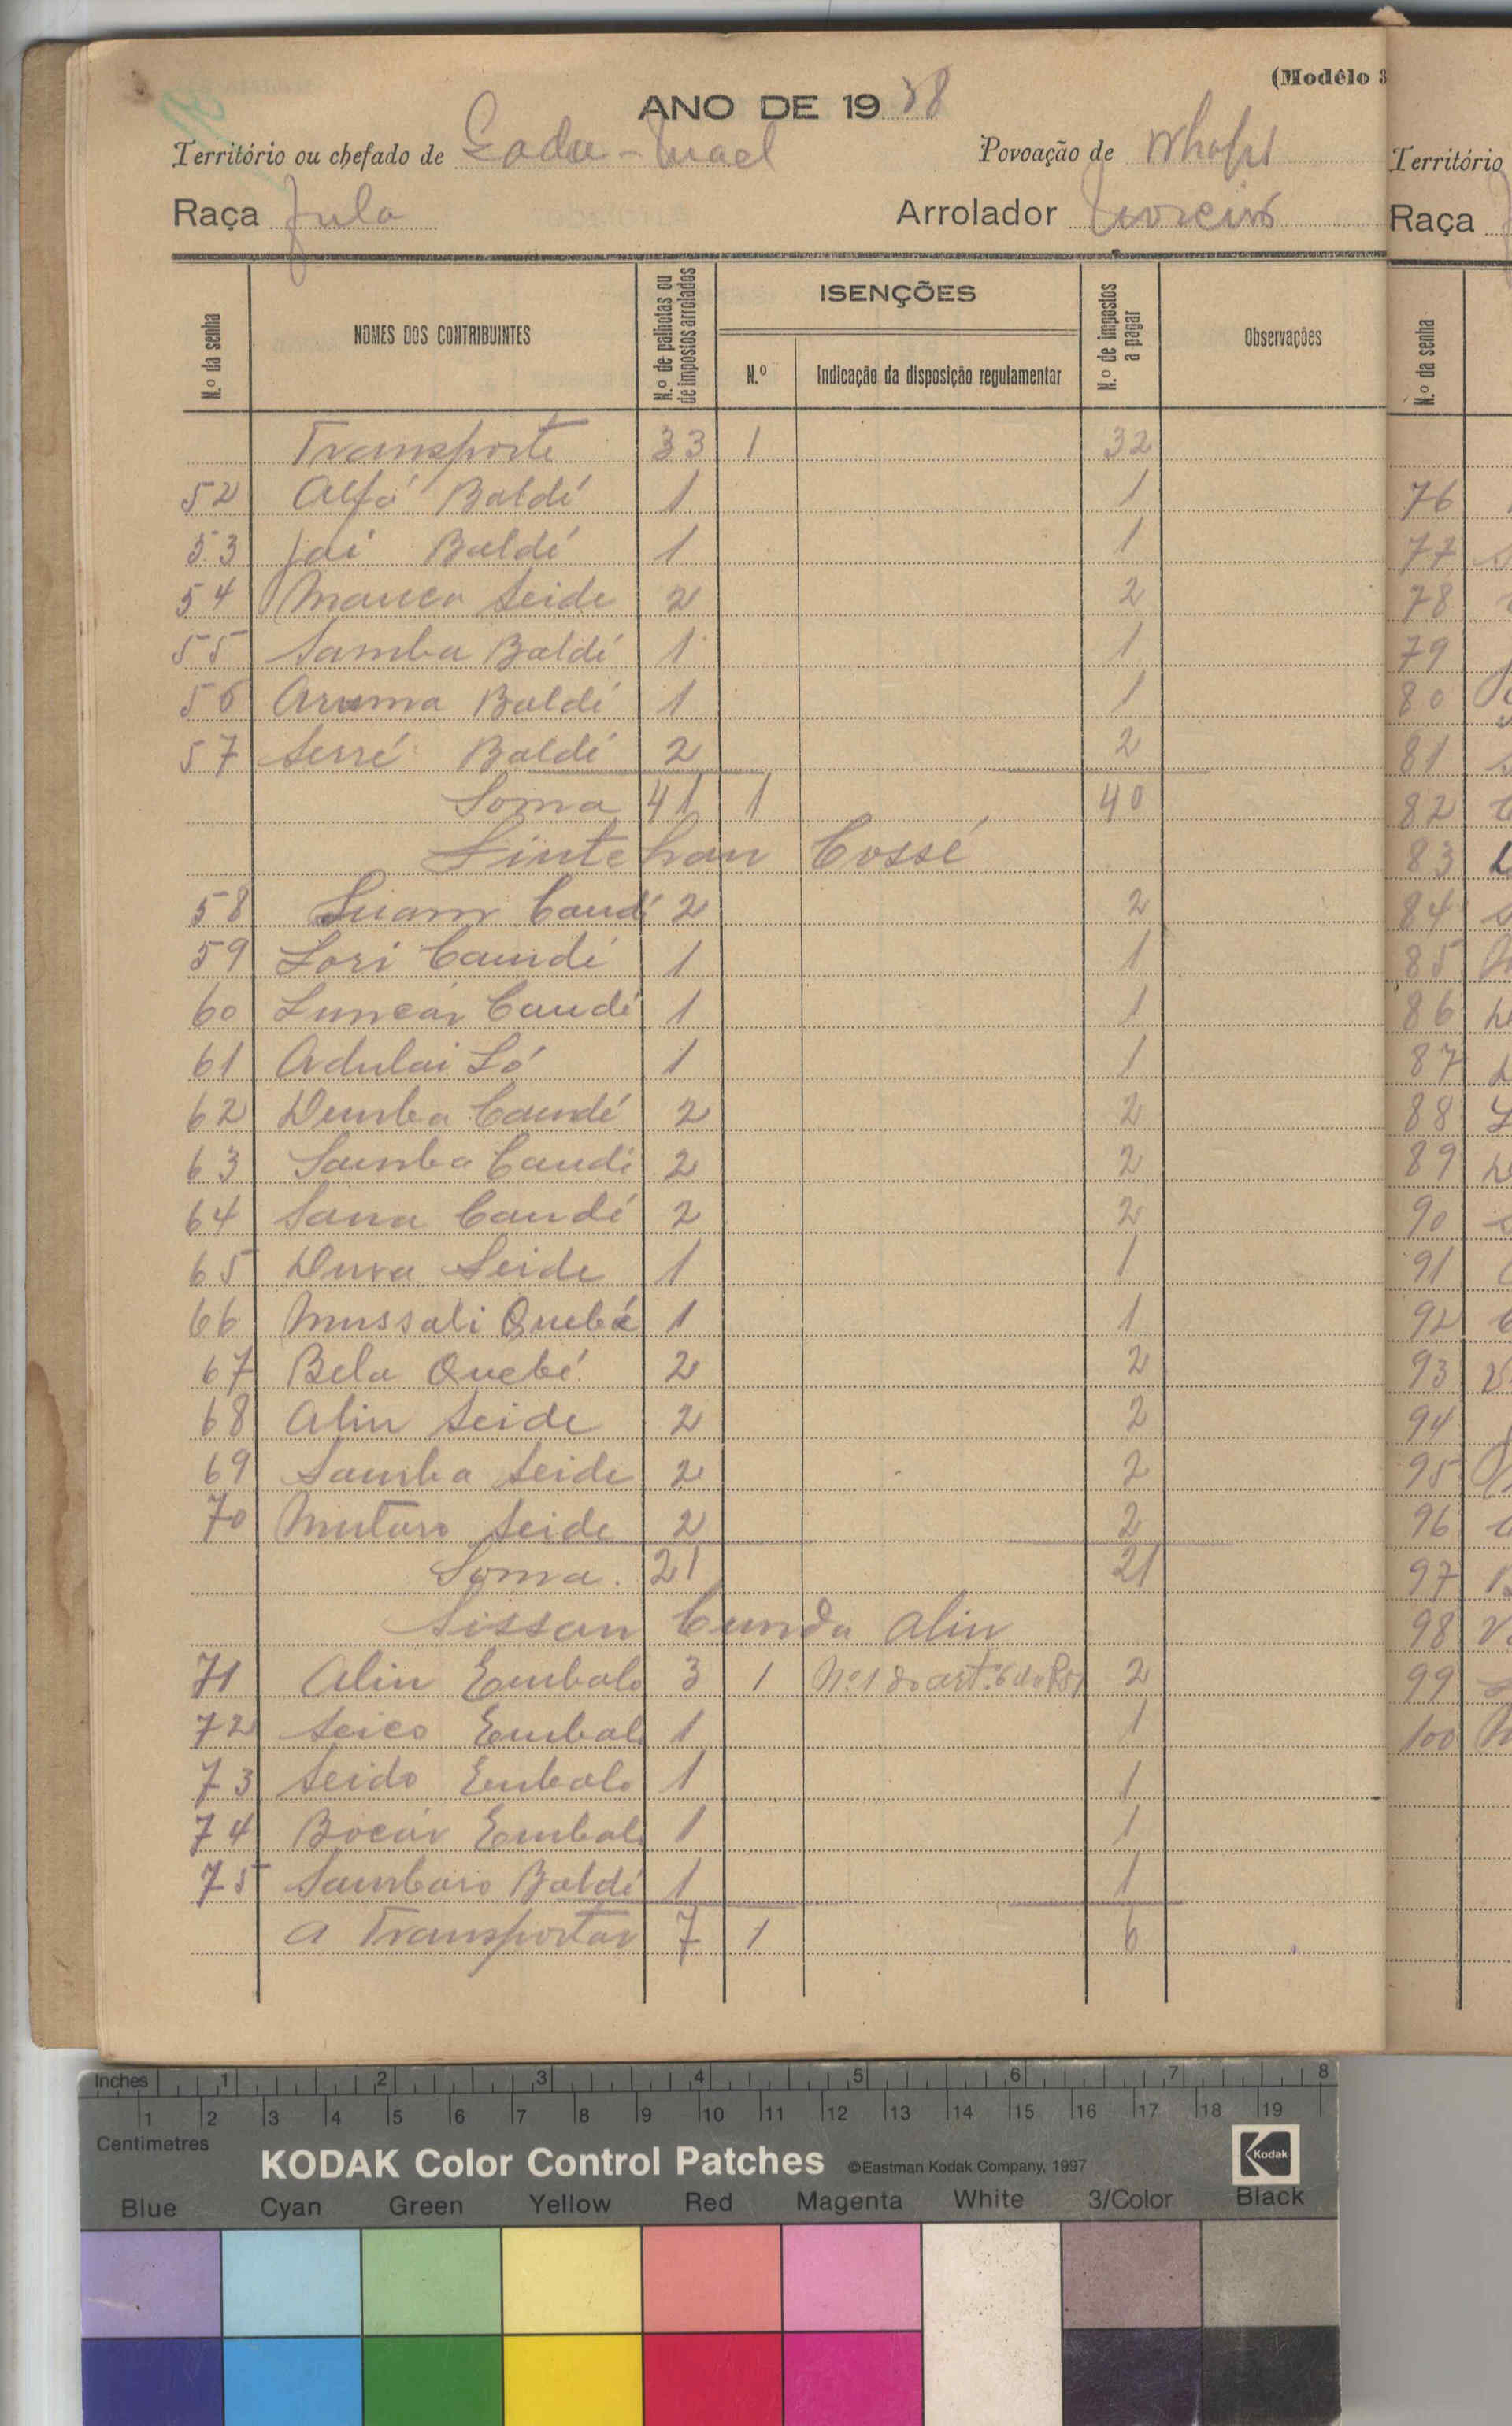 (Modêlo 3
ANO DE 19 38
Território ou chefado de Povoação de
Raça Fula Arrolador
N.º da senha NOMES DOS CONTRIBUINTES N.º de palhotas ou de impostos arrolados ISENÇÕES N.º de impostos a pagar Observações
N.º Indicação da disposição regulamentar
Transporte 33 1 32
52 Alfá Baldé 1 1
53 Jai Baldé 1 1
54 Seide 2 2
55 Samba Baldé 1 1
56 Aruma Baldé 1 1
57 Serré Baldé 2 2
Soma 41 1 40
Cossé
58 Candé 2 2
59 Lori Candé 1 1
60 Candé 1 1
61 Adulai Só 1 1
62 Demba Candé 2 2
63 Samba Candé 2 2
64 Sana Candé 2 2
65 Seide 1 1
66 Mussali Quebé 1 1
67 Bela Quebé 2 2
68 Aliu Seide 2 2
69 Samba Seide 2 2
70 Mutaro Seide 2 2
Soma. 21 21
Sissau Cunda Aliu
71 Aliu Embalo 3 1 Nº 1 do artº 6 do 2
72 Seico Embal 1 1
73 Seido Embalo 1 1
74 Bocár Embal 1 1
75 Sambaro Baldé 1 1
A Transportar 7 1 6
Território
Raça
N.º da senha
76
77
78
79
80
81
82
83
84
85
86
87
88
89
90
91
92
93
94
95
96
97
98
99
100
Inches 1 2 3 4 5 6 7 8
Centimetres 1 2 3 4 5 6 7 8 9 10 11 12 13 14 15 16 17 18 19
KODAK Color Control Patches ©Eastman Kodak Company, 1997 Kodak
Blue Cyan Green Yellow Red Magenta White 3/Color Black